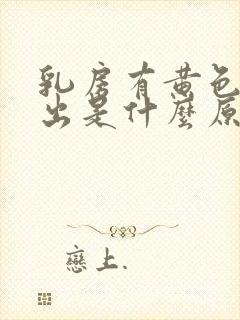 乳房有黄色
出是什麼原
戀上.